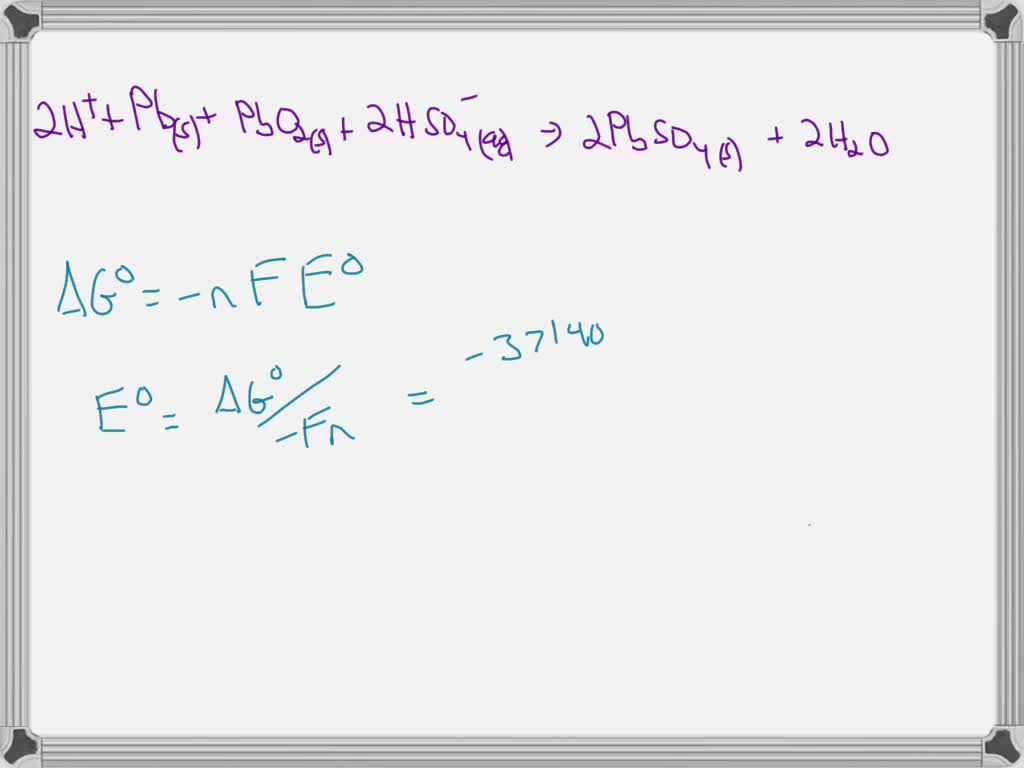 2H⁺ + Pb(s) + PbO₂(s) + 2HSO₄⁻(aq) → 2PbSO₄(s) + 2H₂O
ΔG° = -nFE°
E° = ΔG°/-Fn = -37140